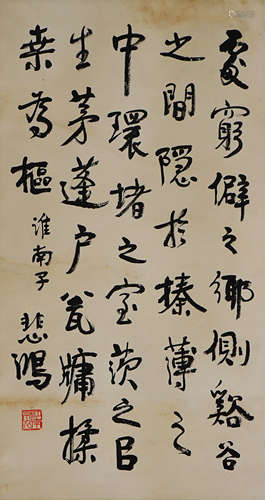 處窮僻之鄉側谿谷
之間隱於榛薄之
中環堵之室茨之以
生茅蓬戶瓮牖揉
桑為樞 淮南子 悲鴻